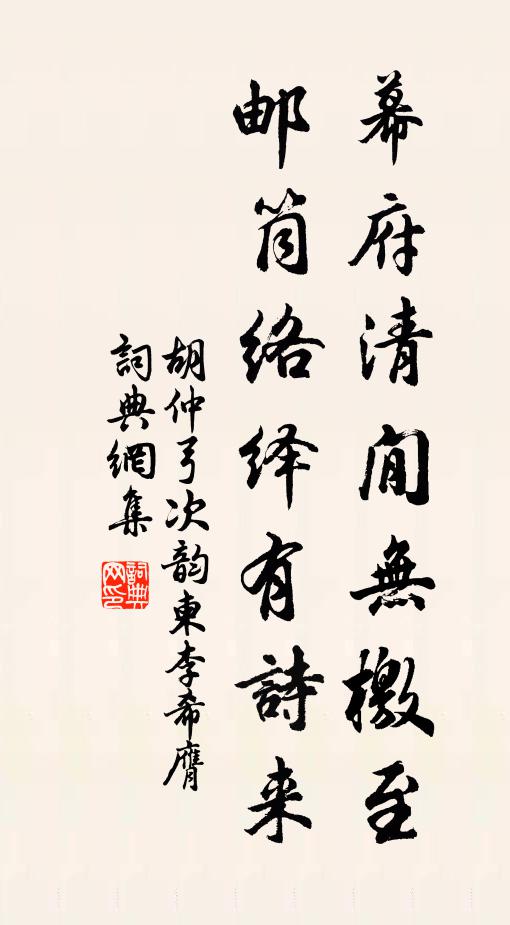 幕府清閒無檄至
邮筒络绎有詩来
胡仲弓次韵東李希膺
詞典網集
詞典网印